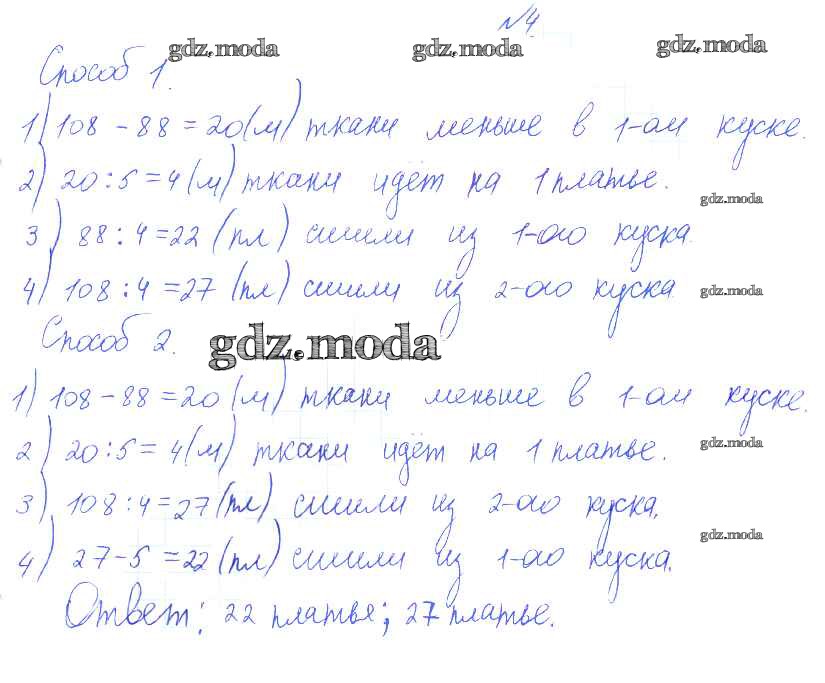 №4
gdz.moda gdz.moda gdz.moda
Способ 1.
1) 108 - 88 = 20 (м) ткани меньше в 1-ом куске.
2) 20 : 5 = 4 (м) ткани идёт на 1 платье.
gdz.moda
3) 88 : 4 = 22 (пл) сшили из 1-ого куска.
4) 108 : 4 = 27 (пл) сшили из 2-ого куска.
gdz.moda
Способ 2.
gdz.moda
1) 108 - 88 = 20 (м) ткани меньше в 1-ом куске.
2) 20 : 5 = 4 (м) ткани идёт на 1 платье.
gdz.moda
3) 108 : 4 = 27 (пл) сшили из 2-ого куска.
gdz.moda
4) 27 - 5 = 22 (пл) сшили из 1-ого куска.
Ответ: 22 платья; 27 платье.